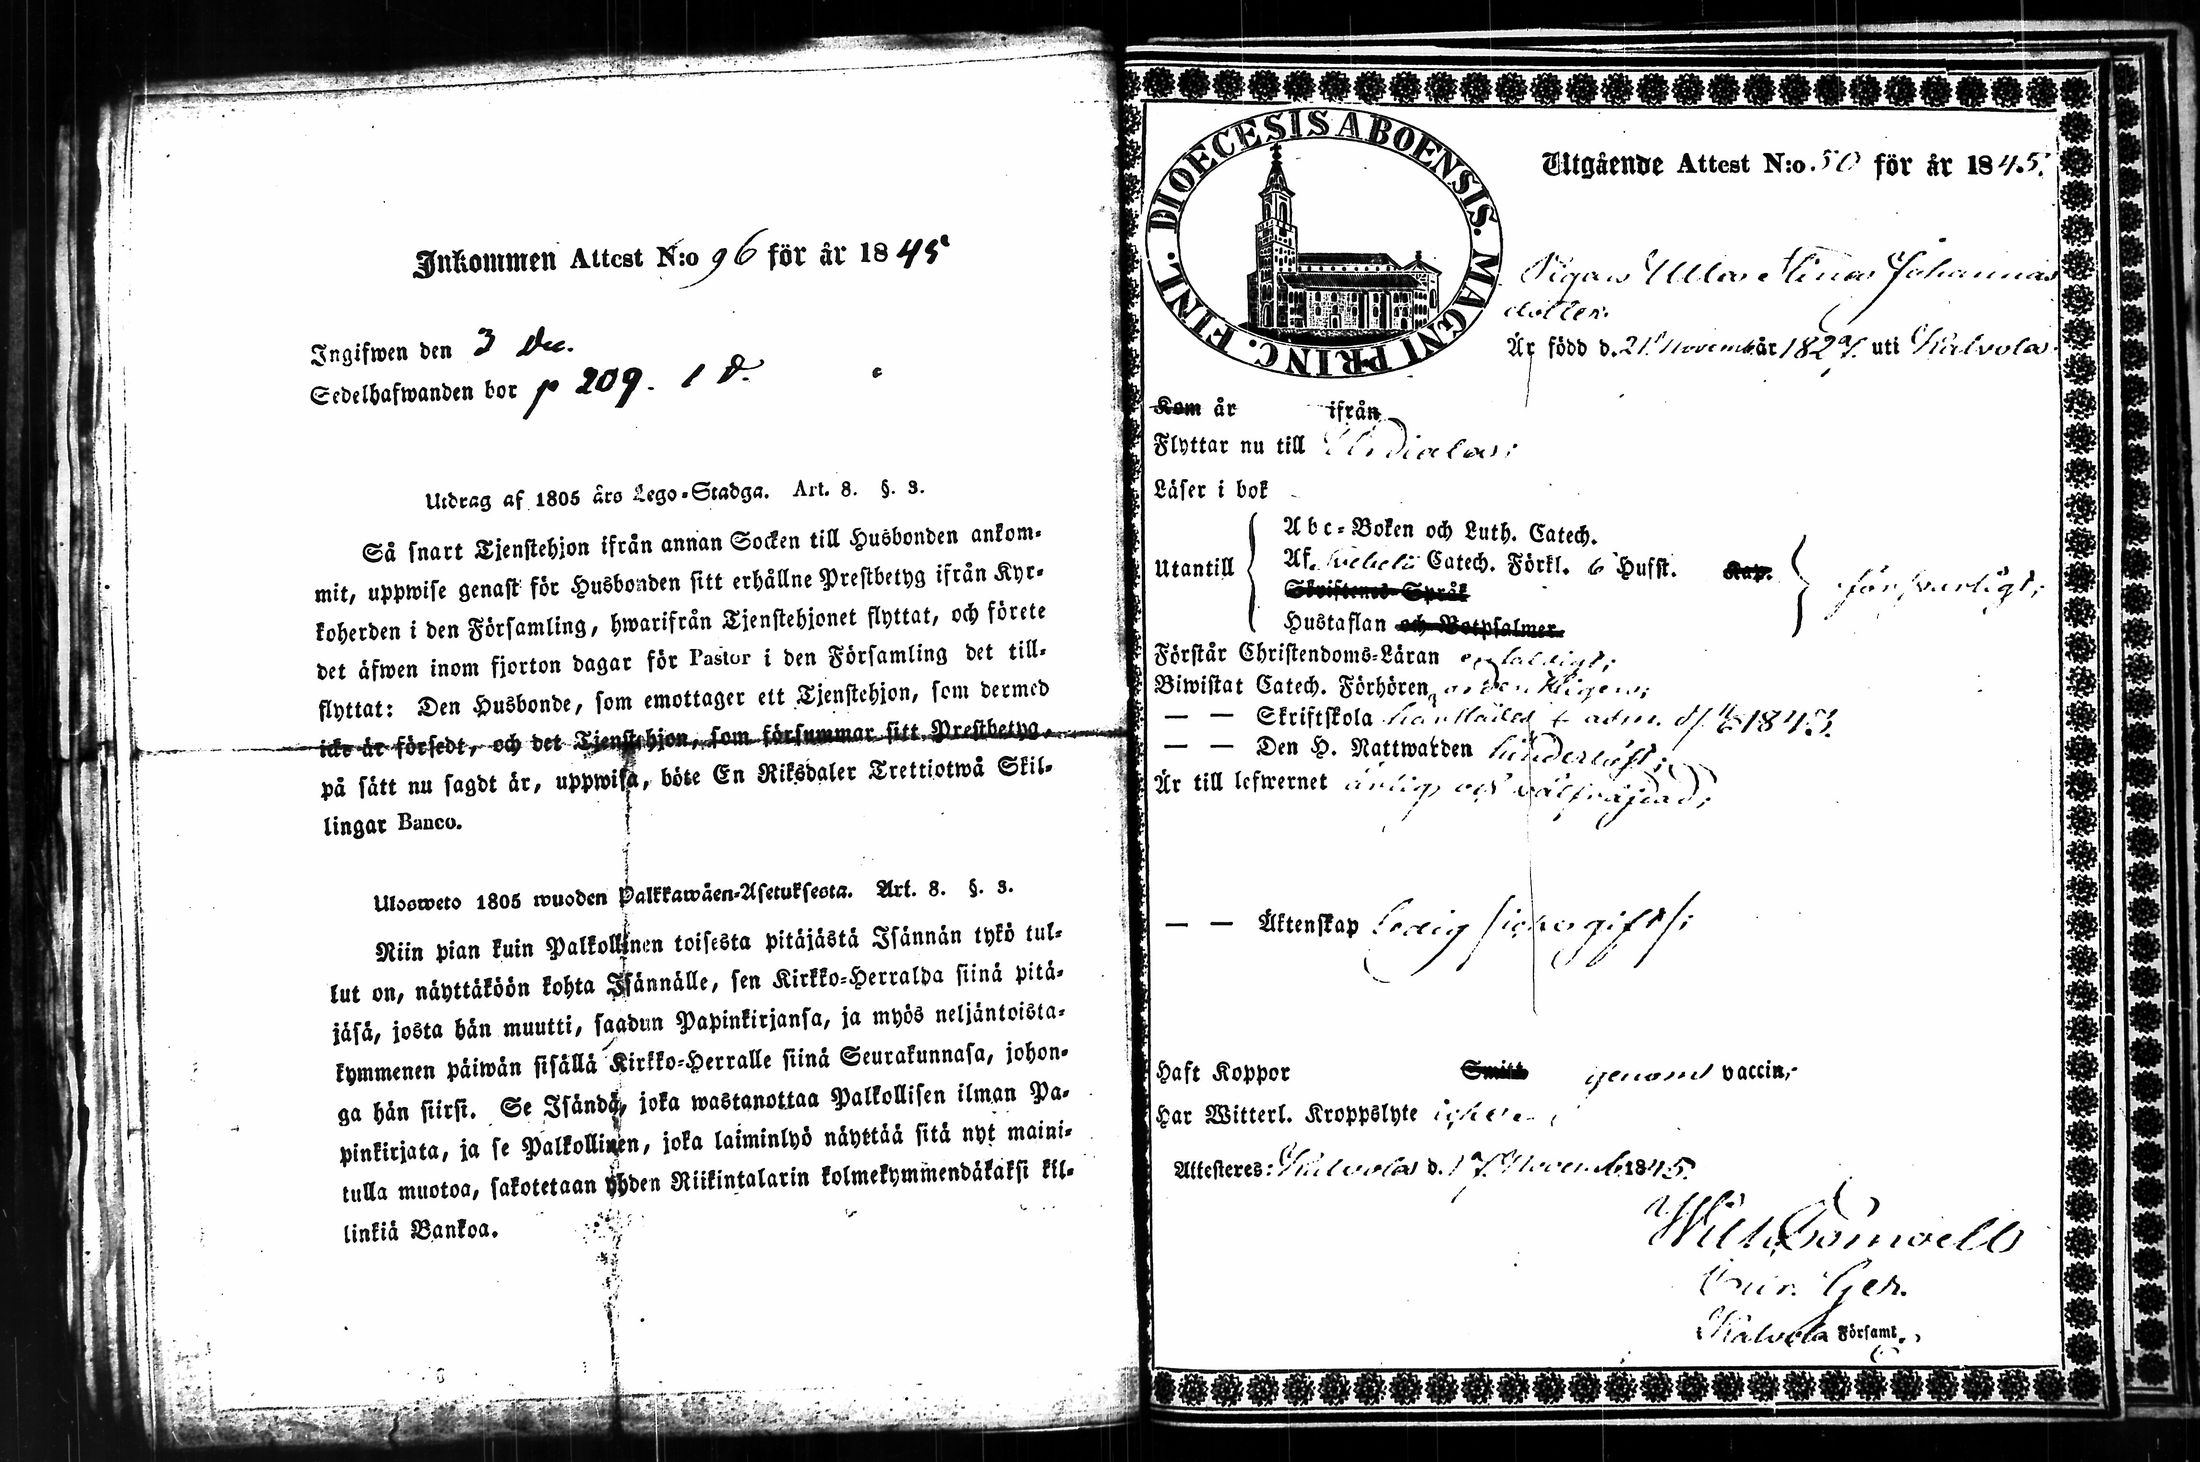 Inkommen Attest N:o 96 för år 1845
Ingifwen den 3 Dec.
Sedelhafwanden bor p 209. 1 d.
Utdrag af 1805 års Lego-Stadga. Art. 8. §. 3.
Så snart Tjenstehjon ifrån annan Socken till Husbonden ankom-
mit, uppwise genast för Husbonden sitt erhållne Prestbetyg ifrån Kyr-
koherden i den Församling, hwarifrån Tjenstehjonet flyttat, och förete
det äfwen inom fjorton dagar för Pastor i den Församling det till-
flyttat: Den Husbonde, som emottager ett Tjenstehjon, som dermed
icke är försedt, och det Tjenstehjon, som försummar sitt Prestbetyg,
på sätt nu sagdt är, uppwisa, böte En Riksdaler Trettiotwå Skil-
lingar Banco.
Ulosweto 1805 wuoden Palkkawäen-Asetuksesta. Art. 8. §. 3.
Niin pian kuin Palkollinen toisesta pitäjästä Isännän tykö tul-
lut on, näyttäköön kohta Isännälle, sen Kirkko-Herralda siinä pitä-
jäsä, josta hän muutti, saadun Papinkirjansa, ja myös neljäntoista-
kymmenen päiwän sisällä Kirkko-Herralle siinä Seurakunnasa, johon-
ga hän siirsi. Se Isändä, joka wastanottaa Palkollisen ilman Pa-
pinkirjata, ja se Palkollinen, joka laiminlyö näyttää sitä nyt maini-
tulla muotoa, sakotetaan yhden Riikintalarin kolmekymmendäkaksi kil-
linkiä Bankoa.
DIOECESIS ABOENSIS. MAGNI PRINC. FINL.
Utgående Attest N:o 50 för år 1845.
Pigan Ulla Stina Johannas
dotter.
Är född d. 21 Novemb år 1827. uti Kalvola
Kom år ifrån
Flyttar nu till Urdiala;
Läser i bok
Utantill
Abc-Boken och Luth. Catech.
Af Svebelii Catech. Förkl. 6 Hufst. Kap.
Skriftenes Språk
Hustaflan och Botpsalmer.
försvarligt;
Förstår Christendoms-Läran enfaldigt;
Biwistat Catech. Förhören ordentligen;
— — Skriftskola 1843
— — Den H. Nattwarden hinderlöst;
Är till lefwernet ärlig och välfräjdad;
— — Äktenskap ledig /icke gift/;
Haft Koppor Smitt genom vaccin;
Har Witterl. Kroppslyte icke
Attesteres: Kalvola d. 17 Novemb 1845.
Wilh.
Ger.
Kalvola Församl.